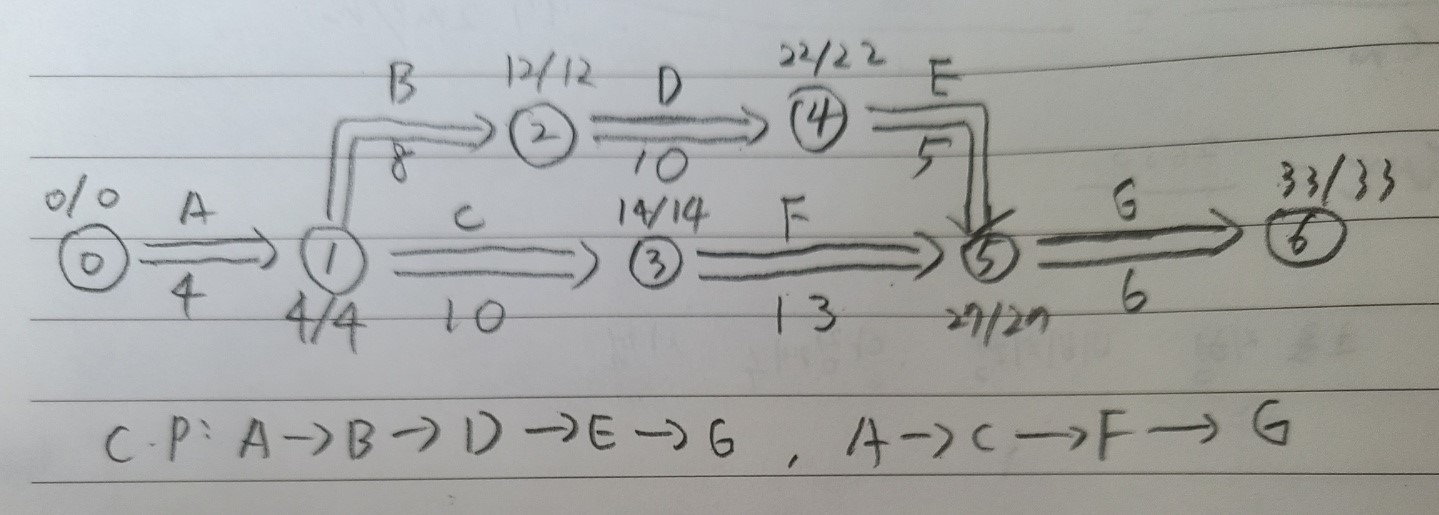 B 12/12 D 22/22 E
2 4
8 10 5
0/0 A C 14/14 F G 33/33
0 1 3 5 6
4 4/4 10 13 27/27 6
C.P: A→B→D→E→G , A→C→F→G